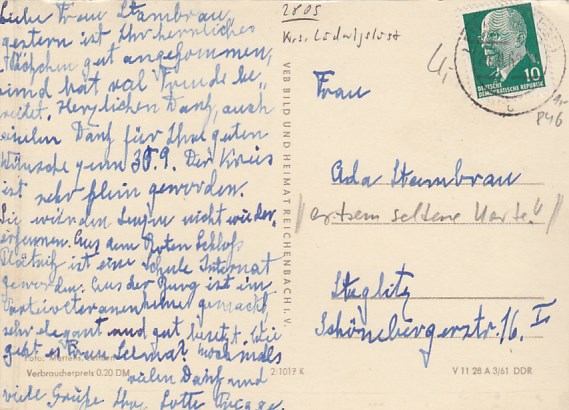 Liebe Frau Stambrau,
gestern ist Ihr herrliches
gut angekommen,
und hat viel Freude be
reitet. Herzlichen Dank, auch
vielen Dank für Ihre guten
Wünsche zum 30.9. Der Kreis
ist sehr klein geworden.
Sie würden Lenzen nicht wieder
erkennen. Aus dem Roten Schloß
ist eine Schule Internat
geworden. Aus der Burg ist ein
Parteiveteranenheim gemacht,
sehr elegant und gut besetzt. Wie
geht es Frau Nochmals
vielen Dank und
viele Grüße Ihre Lotte
Foto:
Verbraucherpreis 0.20 DM
2/1017 K
VEB BILD UND HEIMAT REICHENBACH I. V.
2805
Krs. Ludwigslust
4,-
DEUTSCHE
DEMOKRATISCHE REPUBLIK
10
846
Frau
Ada Stambrau
seltene Karte!!
Steglitz
Schönebergerstr. 16. I
V 11 28 A 3/61 DDR